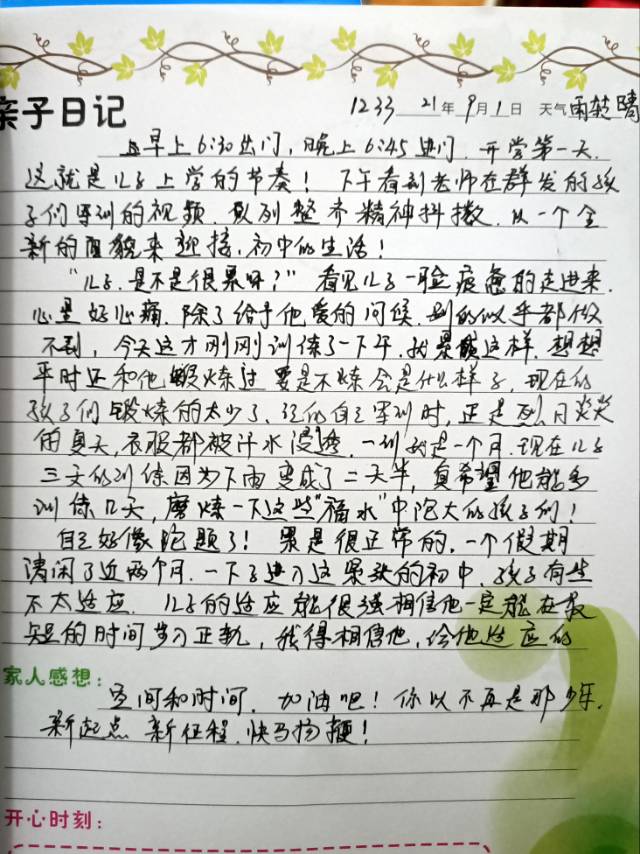 亲子日记 1233 21年9月1日 天气雨转晴
早上6:30出门,晚上6:45进门.开学第一天.
这就是儿子上学的节奏!下午看到老师在群发的孩
子们军训的视频.队列整齐精神抖擞.以一个全
新的面貌来迎接,初中的生活!
"儿子.是不是很累呀?"看见儿子一脸疲惫的走进来.
心里好心痛.除了给予他爱的问候.别的似乎都做
不到,今天这才刚刚训练了一下午.就累成这样.想想
平时还和他锻炼过要是不炼会是什么样子,现在的
孩子们锻炼的太少了、记的自己军训时,正是烈日炎炎
的夏天,衣服都被汗水浸透.一训就是一个月.现在儿子
三天的训练因为下雨变成了二天半,真希望他能多
训练几天,磨炼一下这些"福水"中泡大的孩子们!
自己好像跑题了!累是很正常的.一个假期
清闲了近两个月.一下子进入这紧张的初中.孩子有些
不太适应.儿子的适应能很强相信他一定能在最
短的时间步入正轨,我得相信他,给他适应的
家人感想:
空间和时间.加油吧!你以不再是那少年.
新起点新征程.快马扬鞭!
开心时刻: